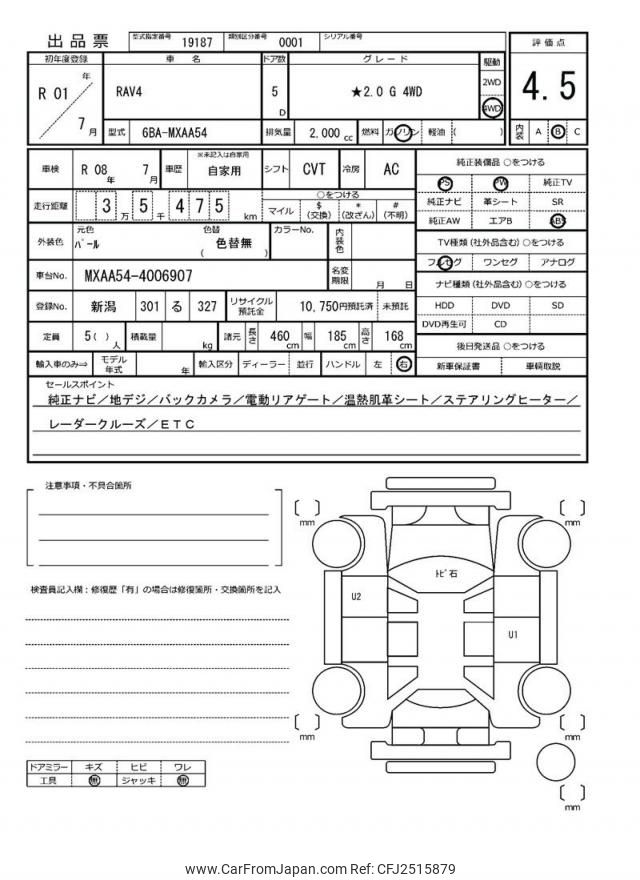 出品票 型式指定番号 19187 類別区分番号 0001 シリアル番号
評価点
4.5
内装 A B C
初年度登録 車名 ドア数 グレード 駆動
R 01 年 7 月
RAV4 5 D ★2.0 G 4WD 2WD 4WD
型式 6BA-MXAA54 排気量 2,000 cc 燃料 ガソリン 軽油 ( )
車検 R 08 年 7 月 車歴 ※未記入は自家用 自家用 シフト CVT 冷房 AC
走行距離 3 万 5 千 4 7 5 km ○をつける マイル $ (交換) * (改ざん) # (不明)
外装色 元色 パール 色替 ( 色替無 ) カラーNo. 内装色
車台No. MXAA54-4006907 名変期限 月 日
登録No. 新潟 301 る 327 リサイクル預託金 10,750円預託済 未預託
定員 5( ) 人 積載量 kg 諸元 長さ 460 cm 幅 185 cm 高さ 168 cm
輸入車のみ⇒ モデル年式 年 輸入区分 ディーラー 並行 ハンドル 左 右
純正装備品 ○をつける
PS PW 純正TV
純正ナビ 革シート SR
純正AW エアB ABS
TV種類(社外品含む)○をつける
フルセグ ワンセグ アナログ
ナビ種類(社外品含む)○をつける
HDD DVD SD
DVD再生可 CD
後日発送品 ○をつける
新車保証書 車輌取説
セールスポイント
純正ナビ／地デジ／バックカメラ／電動リアゲート／温熱肌革シート／ステアリングヒーター／
レーダークルーズ／ETC
注意事項・不具合箇所
検査員記入欄：修復歴「有」の場合は修復箇所・交換箇所を記入
ドアミラー キズ ヒビ ワレ
工具 無 ジャッキ 無
[ ] mm
[ ] mm
トビ石
U2
U1
[ ] mm
[ ] mm
[ ] mm
www.CarFromJapan.com Ref: CFJ2515879